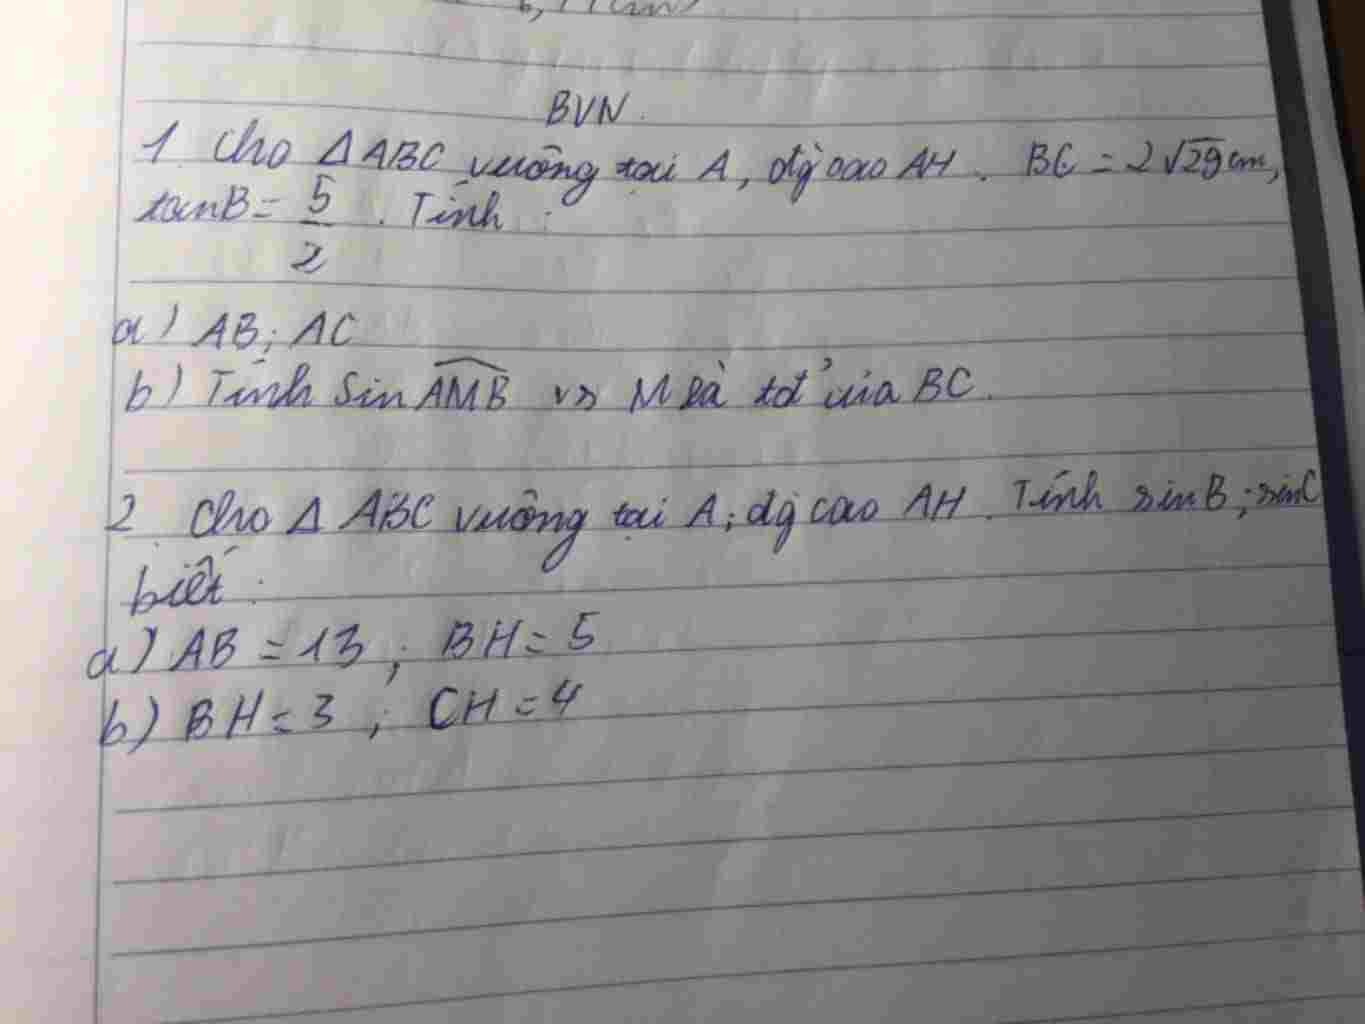 BVN.
1. Cho Δ ABC vuông tại A, đg cao AH. BC = 2√29 cm,
tanB = 5/2. Tính:
a) AB; AC
b) Tính Sin AMB vs M là tđ' của BC.
2. Cho Δ ABC vuông tại A; đg cao AH. Tính sinB; sinC
biết:
a) AB = 13; BH = 5
b) BH = 3; CH = 4